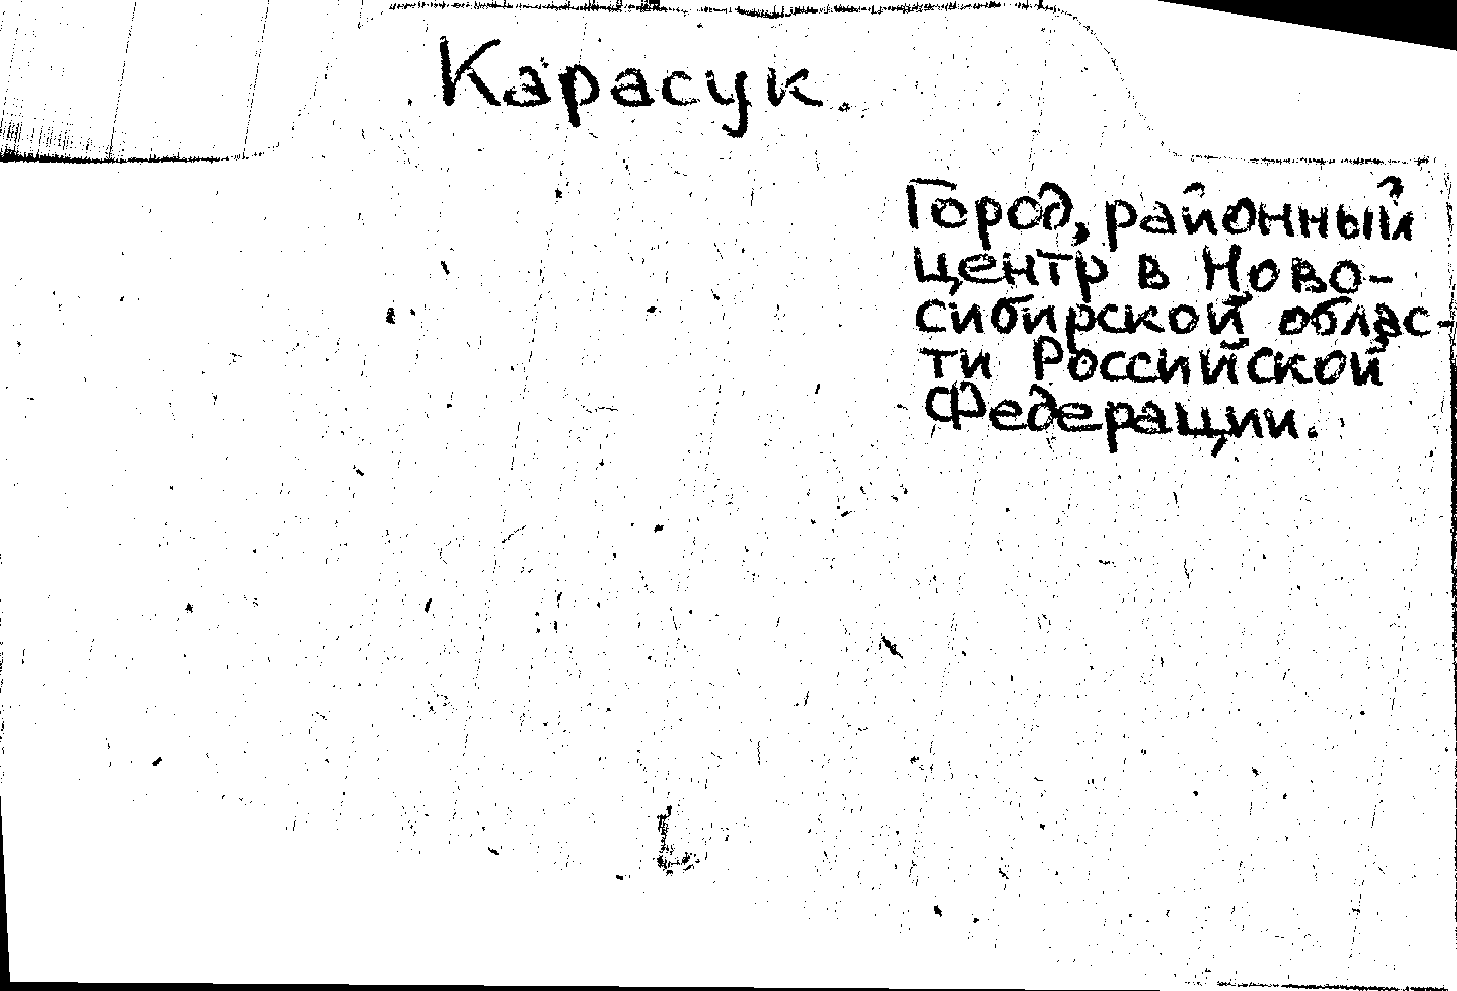 Карасук.
Город, районный
центр в Ново-
сибирской облас-
ти Российской
Федерации.